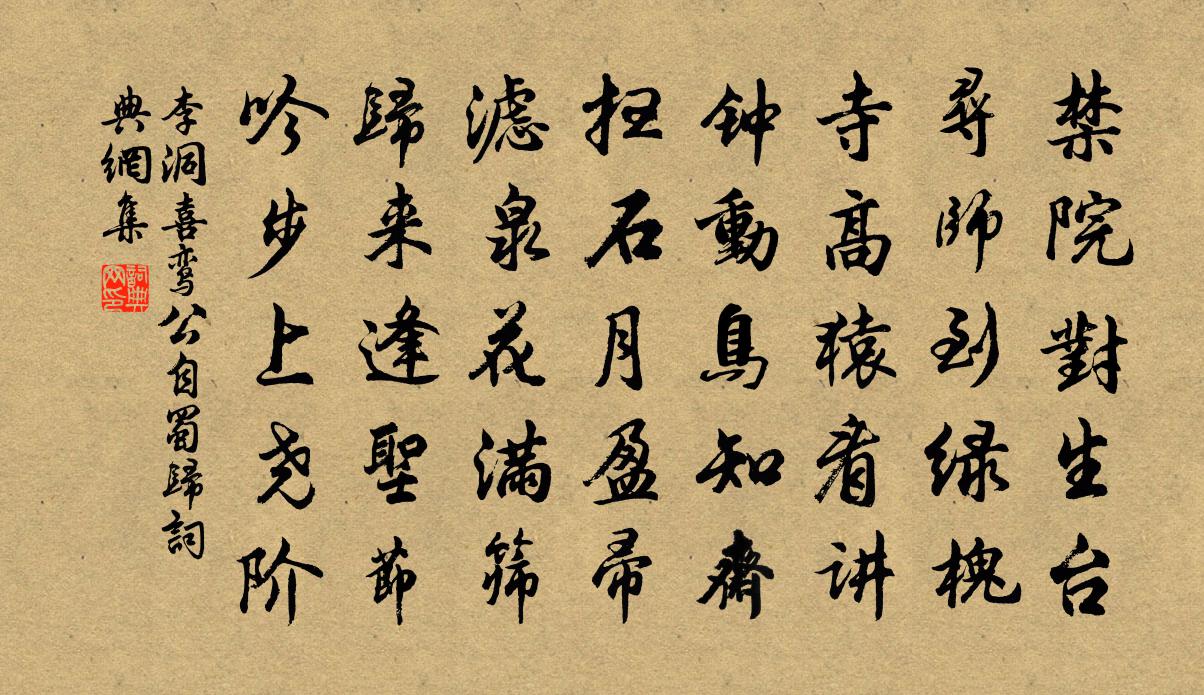 禁院對生台
尋師到绿槐
寺高猿看讲
钟動鳥知齋
扫石月盈帚
滤泉花满筛
歸来逢聖節
吟步上尧阶
李洞喜鸾公自蜀歸詞
典網集
詞典
网印